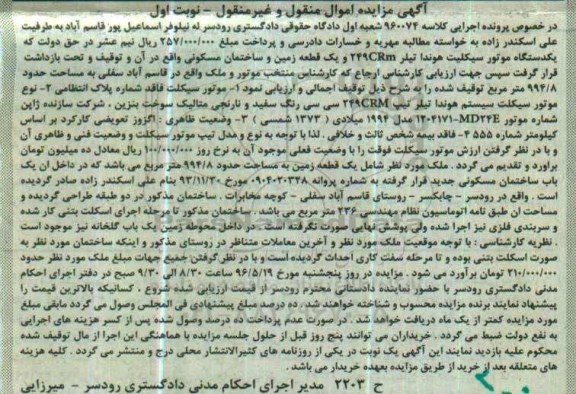 آگهی مزایده اموال منقول و غیرمنقول - نوبت اول
در خصوص پرونده اجرایی کلاسه ۹۶۰۰۷۴ شعبه اول دادگاه حقوقی دادگستری رودسر له نیلوفر اسماعیل پور قاسم آباد به طرفیت
علی اسکندر زاده به خواسته مطالبه مهریه و خسارات دادرسی و پرداخت مبلغ ۲۵۷/۰۰۰/۰۰۰ ریال نیم عشر در حق دولت که
یکدستگاه موتور سیکلیت هوندا تیلر ۲۴۹CRm و یک قطعه زمین و ساختمان مسکونی واقع در آن و توقیف و تحت بازداشت
قرار گرفت سپس جهت ارزیابی کارشناس ارجاع که کارشناس منتخب موتور و ملک واقع در قاسم آباد سفلی به مساحت حدود
۹۹۴/۸ متر مربع توقیف شده را به شرح ذیل توقیف اجمالی و ارزیابی نمود ۱- موتور سیکلت فاقد شماره پلاک انتظامی ۲- نوع
موتور سیکلت سیستم هوندا تیلر تیپ ۲۴۹CRM سی سی رنگ سفید و نارنجی متالیک سوخت بنزین ، شرکت سازنده ژاپن
شماره موتور ۱۲۰۴۱۷۱-MD۲۴E مدل ۱۹۹۴ میلادی ( ۱۳۷۳ شمسی ) ۳- وضعیت ظاهری : اگزوز تعویضی کارکرد بر اساس
کیلومتر شماره ۵۵۵ ۴- فاقد بیمه شخص ثالث و خلافی . لذا با توجه به نوع و مدل تیپ موتور سیکلت و وضعیت فنی و ظاهری آن
و با در نظر گرفتن ارزش موتور سیکلت فوقت را با وضعیت فعلی موجود آن به نرخ روز ۱۰۰/۰۰۰/۰۰۰ ریال معادل ده میلیون تومان
براورد و تقدیم می گردد . ملک مورد نظر شامل یک قطعه زمین به مساحت حدود ۹۹۴/۸ متر مربع می باشد که در داخل ان یک
باب ساختمان مسکونی جدید قرار گرفته به شماره پروانه ۳۰۳۴۸-۰۹۰۴ مورخ ۹۳/۱۱/۳۰ بنام علی اسکندر زاده صادر گردیده
است . واقع در رودسر - چابکسر - روستای قاسم آباد سفلی - کوچه مخابرات . ساختمان مذکور در دو طبقه طراحی گردیده و
مساحت ان طبق نامه اتوماسیون نظام مهندسی متر مربع می باشد . ساختمان مذکور تا مرحله اجرای اسکلت بتنی کار شده
و سربندی فلزی نیز اجرا شده ولی پوشش نهایی صورت نگرفته است . در داخل محوطه زمین یک باب گلخانه نیز موجود است
. نظریه کارشناسی : با توجه موقعیت ملک مورد نظر و آخرین معاملات متناظر در روستای مذکور و اینکه ساختمان مورد نظر به
صورت اسکلت بتنی بوده و تا مرحله سفت کاری احداث گردیده است و با در نظر گرفتن جمیع جهات مبلغ ملک مورد نظر حدود
۲۱۰/۰۰۰/۰۰۰ تومان برآورد می شود . مزایده در روز پنجشنبه مورخ ۹۶/۵/۱۹ ساعت ۸/۳۰ الی ۹/۳۰ صبح در دفتر اجرای احکام
مدنی دادگستری رودسر با حضور نماینده دادستانی محترم رودسر از قیمت ارزیابی شده شروع ، کسانیکه بالاترین قیمت را
پیشنهاد نمایند برنده مزایده محسوب و شناخته خواهند شد، ده درصد مبلغ پیشنهادی فی المجلس وصول می گردد مابقی مبلغ
مورد مزایده کمتر از یک ماه دریافت خواهد شد . در صورت عدم پرداخت ده درصد وصول شده پس از کسر هزینه های اجرایی
به نفع دولت ضبط می گردد . خریداران می توانند پنج روز قبل از حلول جلسه مزایده با هماهنگی این اجرا از مال توقیف شده
محکوم علیه بازدید نمایند این آگهی یک نوبت در یکی از روزنامه های کثیرالانتشار محلی درج و منتشر می گردد . کلیه هزینه
های متعلقه بعد از خرید از طریق مزایده بعهده خریدار می باشد .
ح ۲۲۰۳ مدیر اجرای احکام مدنی دادگستری رودسر - میرزایی